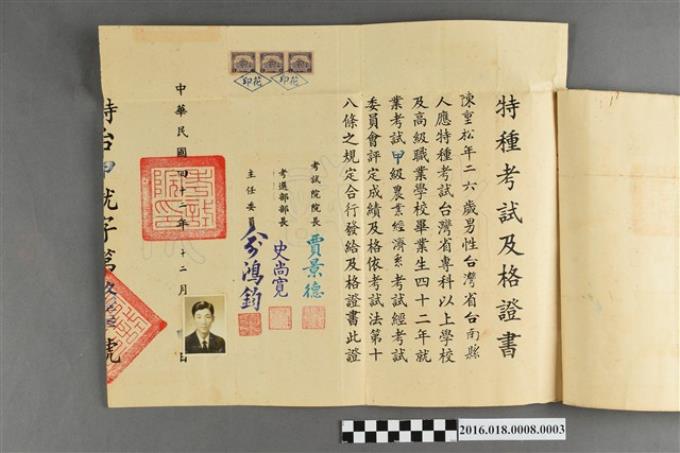 特種考試及格證書
陳重松年二六歲男性台灣省台南縣
人應特種考試台灣省專科以上學校
及高級職業學校畢業生四十二年就
業考試甲級農業經濟系考試經考試
委員會評定成績及格依考試法第十
八條之規定合行發給及格證書此證
考試院院長 賈景德
考選部部長 史尚寬
主任委員 俞鴻鈞
印花 印花
中華民國四十二年十二月 日
考試院印
特台甲就字第 號
2016.018.0008.0003